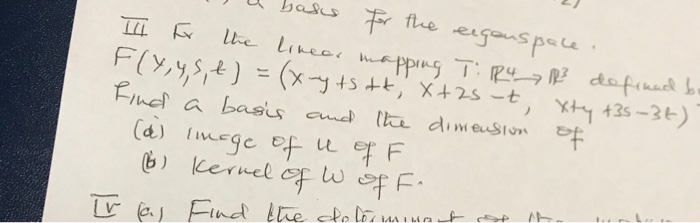 a basis for the eigenspace.
III For the linear mapping T: ℝ⁴→ℝ³ defined b
F(x,y,s,t) = (x-y+s+t, x+2s-t, x+y+3s-3t)
Find a basis and the dimension of
(a) image of U of F
(b) Kernel of W of F.
IV (a) Find the